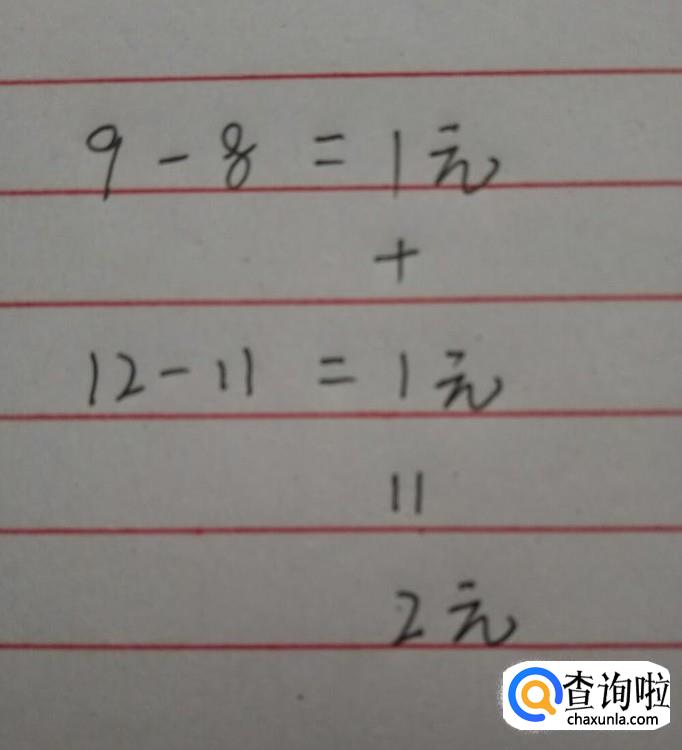 9-8=1元
+
12-11=1元
11
2元
查询啦
chaxunla.com